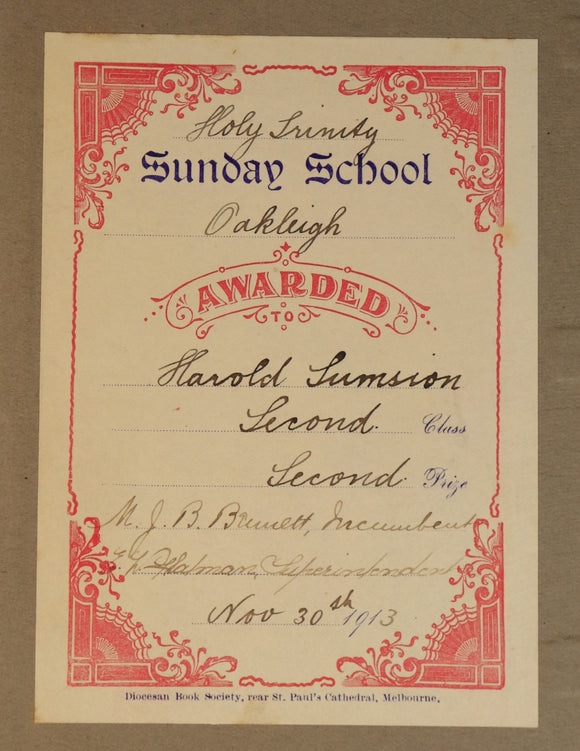 Holy Trinity
Sunday School
Oakleigh
AWARDED
TO
Harold Sumsion
Second Class
Second Prize
M. J. B. Bennett, Incumbent
Superintendent
Nov 30th 1913
Diocesan Book Society, rear St. Paul's Cathedral, Melbourne,